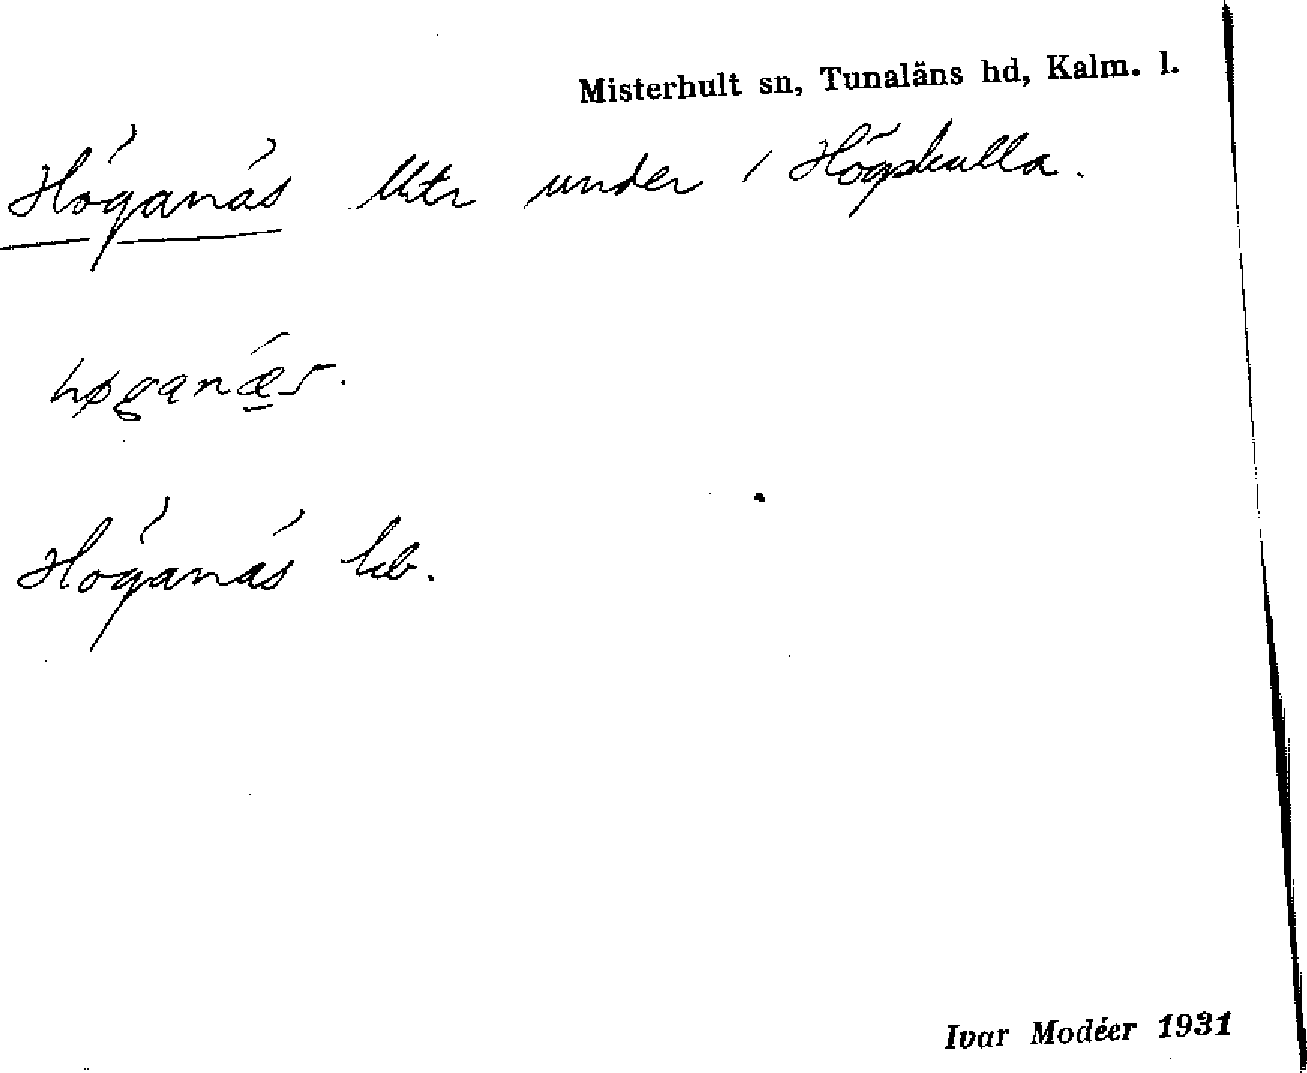 Misterhult sn, Tunaläns hd, Kalm. l.
Höganäs lltr under 1 Högskulla.
Höganäs
Ivar Modéer 1931